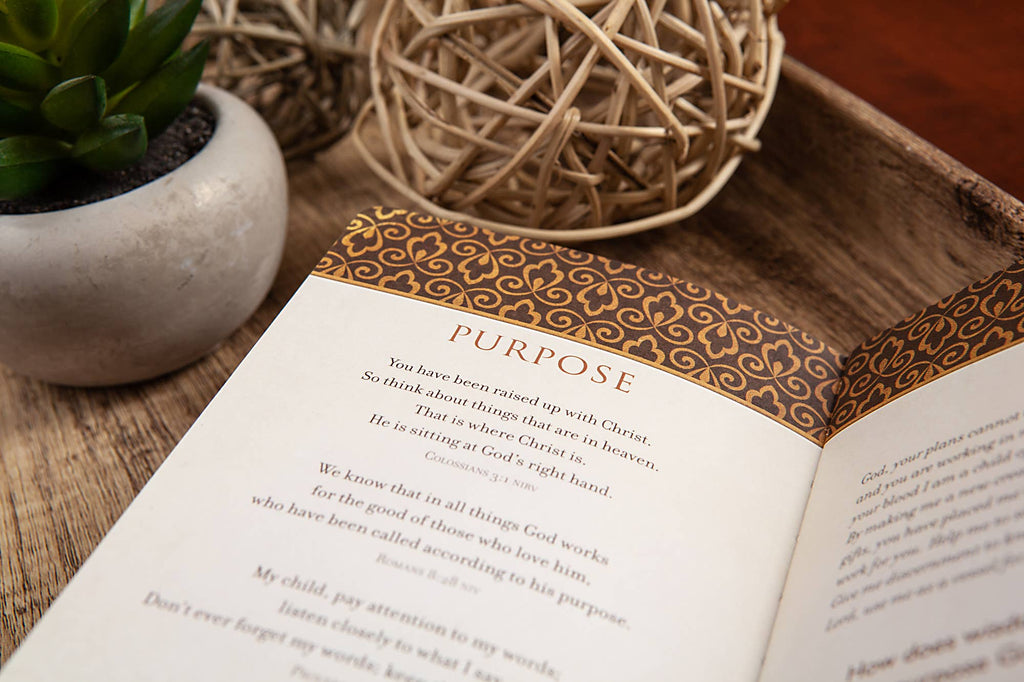 PURPOSE
You have been raised up with Christ.
So think about things that are in heaven.
That is where Christ is.
He is sitting at God's right hand.
Colossians 3:1 NIRV
We know that in all things God works
for the good of those who love him,
who have been called according to his purpose.
Romans 8:28 NIV
My child, pay attention to my words;
listen closely to what I say
Don't ever forget my words; keep
God, your plans cannot
and you are working in
your blood I am a child of
By making me a new
gifts, you have placed me
work for you. Help me to
Give me discernment to
Lord, use me
How does